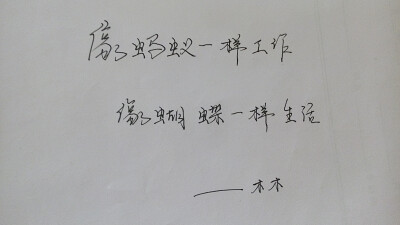 像蚂蚁一样工作
像蝴蝶一样生活
——木木